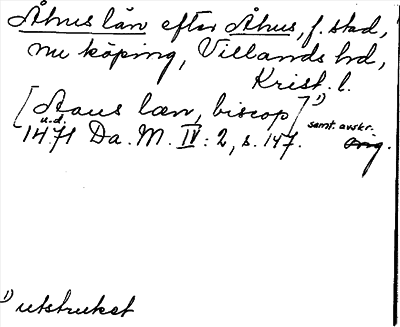 Åhus län efter Åhus, f. stad,
nu köping, Villands hd,
Krist. l.
[Aaus læn, biscop]¹⁾
u.d. samt. avskr.
1471 Da. M. IV: 2, s. 147. orig.
¹⁾ utstruket